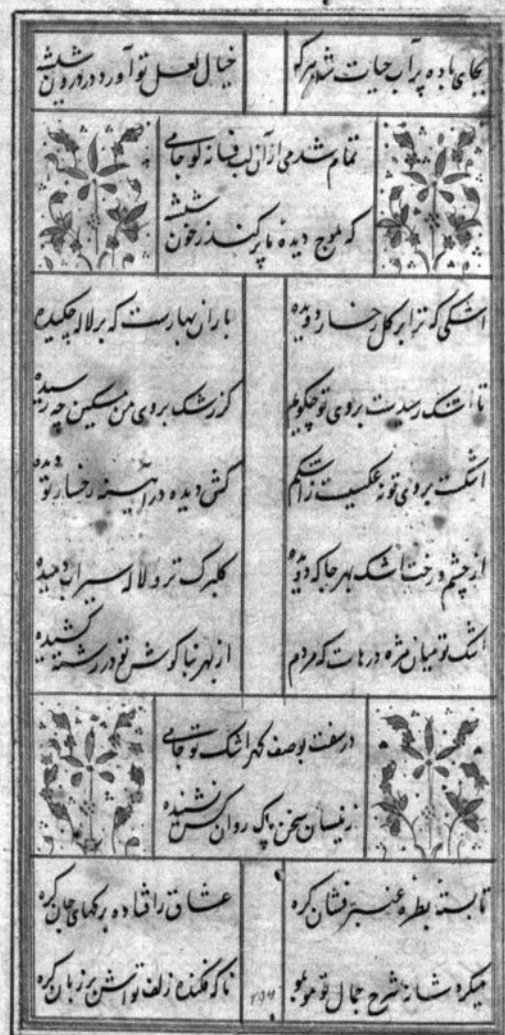 بجای باده پر آب حیات شد هر گو
خیال لعل تو آورد در درون شیشه
تمام شد می از آن لب فسانه گو جامی
که موج دیده ما پر کند ز خون شیشه
اشکی که ترا بر گل رخسار دویده
باران بهارست که بر لاله چکیده
تا اشک رسیدست بروی تو چگویم
کز رشک بروی من مسکین چه رسیده
اشکت بروی تو نه عکسیست ز اشکم
کش دیده در آیینه رخسار تو دیده
از چشم و رخت اشک بهر جا که دویده
گلبرگ تر و لاله سیراب دمیده
اشک تو میان مژه درهاست که مردم
از بهر بناگوش تو در رشته کشیده
در سفت بوصف گهر اشک تو جامی
زینسان سخن پاک روان کس نشنیده
تا بسته بطره عنبر فشان گره
عشاق را فتاده برگهای جان گره
میکرد شانه شرح جمال تو موبمو
ناگه فکنده زلف تواش بر زبان گره